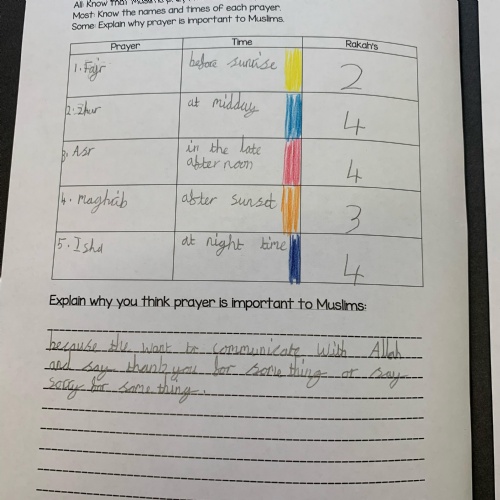 All: Know that Muslims pray
Most: Know the names and times of each prayer.
Some: Explain why prayer is important to Muslims.
Prayer Time Rakah's
1. Fajr before sunrise 2
2. Zhur at midday 4
3. Asr in the late
afternoon 4
4. maghrib after sunset 3
5. Isha at night time 4
Explain why you think prayer is important to Muslims:
because the want to communicate with Allah
and say thank you for something or say
sorry for something.